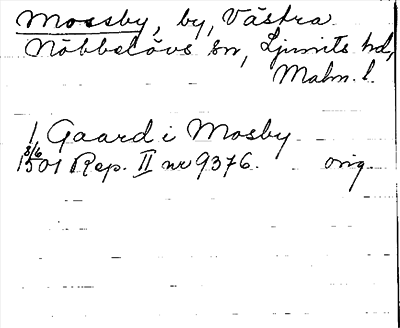 Mossby, by, Västra
Nöbbelövs sn, Ljunits hd,
Malm. l.
1 Gaard i Mosby
8/6
1501 Rep. II nr 9376. orig.